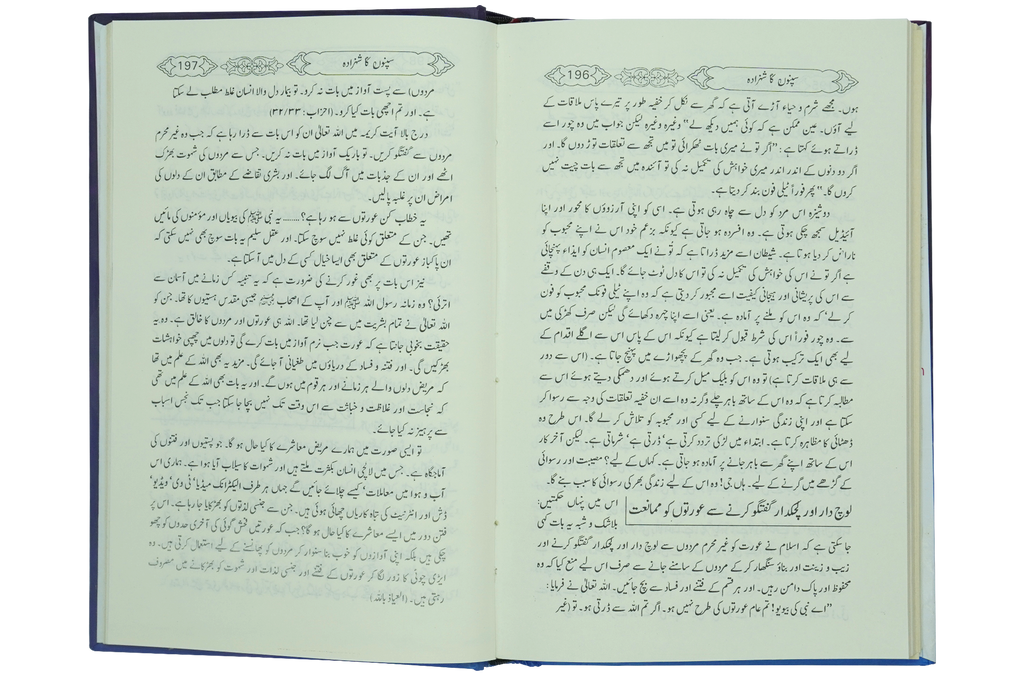 196
سپنوں کا شہزادہ
ہوں۔ مجھے شرم و حیاء آڑے آتی ہے کہ گھر سے نکل کر خفیہ طور پر تیرے پاس ملاقات کے
لیے آؤں۔ عین ممکن ہے کہ کوئی ہمیں دیکھ لے“ وغیرہ وغیرہ لیکن جواب میں وہ چور اسے
ڈراتے ہوئے کہتا ہے: ”اگر تو نے میری بات ٹھکرائی تو میں تجھ سے تعلقات توڑ دوں گا۔ اور
اگر دو دنوں کے اندر اندر میری خواہش کی تکمیل نہ کی تو آئندہ میں تجھ سے بات چیت نہیں
کروں گا۔“ پھر فوراً ٹیلی فون بند کر دیتا ہے۔
دوشیزہ اس مرد کو دل سے چاہ رہی ہوتی ہے۔ اسی کو اپنی آرزوؤں کا محور اور اپنا
آئیڈیل سمجھ چکی ہوتی ہے۔ وہ افسردہ ہو جاتی ہے کیونکہ بزعم خود اس نے اپنے محبوب کو
ناراض کر دیا ہوتا ہے۔ شیطان اسے مزید ڈراتا ہے کہ تو نے ایک معصوم انسان کو ایذاء پہنچائی
ہے اگر تو نے اس کی خواہش کی تکمیل نہ کی تو اس کا دل ٹوٹ جائے گا۔ ایک ہی دن کے وقفے
سے اس کی پریشانی اور ہیجانی کیفیت اسے مجبور کر دیتی ہے کہ وہ اپنے ٹیلی فونک محبوب کو فون
کر لے‘ کہ وہ اس کو ملنے پر آمادہ ہے۔ یعنی اسے اپنا چہرہ دکھائے گی لیکن صرف کھڑکی میں
سے۔ وہ چور فوراً اس کی شرط قبول کر لیتا ہے کیونکہ اس کے پاس اس سے اگلے اقدام کے
لیے بھی ایک ترکیب ہوتی ہے۔ جب وہ گھر کے پچھواڑے میں پہنچ جاتا ہے۔ (اس سے دور
سے ہی ملاقات کرتا ہے) تو وہ اس کو بلیک میل کرتے ہوئے اور دھمکی دیتے ہوئے اس سے
مطالبہ کرتا ہے کہ وہ اس کے ساتھ باہر چلے وگرنہ وہ اسے ان خفیہ تعلقات کی وجہ سے رسوا کر
سکتا ہے اور اپنی زندگی سنوارنے کے لیے کسی اور محبوبہ کو تلاش کر لے گا۔ اس طرح وہ
ڈھٹائی کا مظاہرہ کرتا ہے۔ ابتداء میں لڑکی تردد کرتی ہے‘ ڈرتی ہے‘ شرماتی ہے۔ لیکن آخر کار
اس کے ساتھ اپنے گھر سے باہر جانے پر آمادہ ہو جاتی ہے۔ کہاں کے لیے؟ مصیبت اور رسوائی
کے گڑھے میں گرنے کے لیے۔ ہاں جی! وہ اس کے لیے زندگی بھر کی رسوائی کا سبب بنے گا۔
لوچ دار اور لچکدار گفتگو کرنے سے عورتوں کو ممانعت
اس میں پنہاں حکمتیں:
بلاشک و شبہ یہ بات کہی
جا سکتی ہے کہ اسلام نے عورت کو غیر محرم مردوں سے لوچ دار اور لچکدار گفتگو کرنے اور
زیب و زینت اور بناؤ سنگھار کر کے مردوں کے سامنے جانے سے صرف اس لیے منع کیا کہ وہ
محفوظ اور پاک دامن رہیں۔ اور ہر قسم کے فتنے اور فساد سے بچ جائیں۔ اللہ تعالیٰ نے فرمایا:
”اے نبی کی بیویو! تم عام عورتوں کی طرح نہیں ہو۔ اگر تم اللہ سے ڈرتی ہو۔ تو (غیر
197
سپنوں کا شہزادہ
مردوں) سے پست آواز میں بات نہ کرو۔ تو بیمار دل والا انسان غلط مطلب لے سکتا
ہے۔ اور تم اچھی بات کیا کرو۔ (احزاب: ۳۲/۳۳)
درج بالا آیت کریمہ میں اللہ تعالیٰ ان کو اس بات سے ڈرا رہا ہے کہ جب وہ غیر محرم
مردوں سے گفتگو کریں۔ تو باریک آواز میں بات نہ کریں۔ جس سے مردوں کی شہوت بھڑک
اٹھے اور ان کے جذبات میں آگ لگ جائے۔ اور بشری تقاضے کے مطابق ان کے دلوں کی
امراض ان پر غلبہ پا لیں۔
یہ خطاب کن عورتوں سے ہو رہا ہے؟........ یہ نبی ﷺ کی بیویاں اور مؤمنوں کی مائیں
تھیں۔ جن کے متعلق کوئی غلط نہیں سوچ سکتا۔ اور عقل سلیم یہ بات سوچ بھی نہیں سکتی کہ
ان پاکباز عورتوں کے متعلق بھی ایسا خیال کسی کے دل میں آ سکتا ہے۔
نیز اس بات پر بھی غور کرنے کی ضرورت ہے کہ یہ تنبیہ کس زمانے میں آسمان سے
اتری؟ وہ زمانہ رسول اللہ ﷺ اور آپ کے اصحاب ﷺ جیسی مقدس ہستیوں کا تھا۔ جن کو
اللہ تعالیٰ نے تمام بشریت میں سے چن لیا تھا۔ اللہ ہی عورتوں اور مردوں کا خالق ہے۔ وہ یہ
حقیقت بخوبی جانتا ہے کہ عورت جب نرم آواز میں بات کرے گی تو دلوں میں چھپی خواہشات
بھڑکیں گی۔ اور فتنہ و فساد کے دریاؤں میں طغیانی آ جائے گی۔ مزید یہ بھی اللہ کے علم میں تھا
کہ مریض دلوں والے ہر زمانے اور ہر قوم میں ہوں گے۔ اور یہ بات بھی اللہ کے علم میں تھی
کہ نجاست اور غلاظت و خباثت سے اس وقت تک نہیں بچا جا سکتا جب تک نجس اسباب
سے پرہیز نہ کیا جائے۔
تو ایسی صورت میں ہمارے مریض معاشرے کا کیا حال ہو گا۔ جو پستیوں اور فتنوں کی
آماجگاہ ہے۔ جس میں لالچی انسان بکثرت ملتے ہیں اور شہوات کا سیلاب آیا ہوا ہے۔ ہماری اس
آب و ہوا میں معاملات‘ کیسے چلائے جائیں گے جہاں ہر طرف الیکٹرانک میڈیا‘ ٹی وی‘ ویڈیو‘
ڈش اور انٹرنیٹ کی تباہ کاریاں چھائی ہوئی ہیں۔ جن سے جنسی لذتوں کو بھڑکایا جا رہا ہے۔ اس پر
فتن دور میں ایسے معاشرے کا کیا حال ہو گا؟ جب کہ عورتیں فحش گوئی کی آخری حدوں کو چھو
چکی ہیں بلکہ اپنی آوازوں کو خوب بنا سنوار کر مردوں کو پھانسنے کے لیے استعمال کرتی ہیں۔ وہ
ایڑی چوٹی کا زور لگا کر عورتوں کے فتنے اور جنسی لذات اور شہوت کو بھڑکانے میں مصروف
رہتی ہیں۔ (العیاذ باللہ)